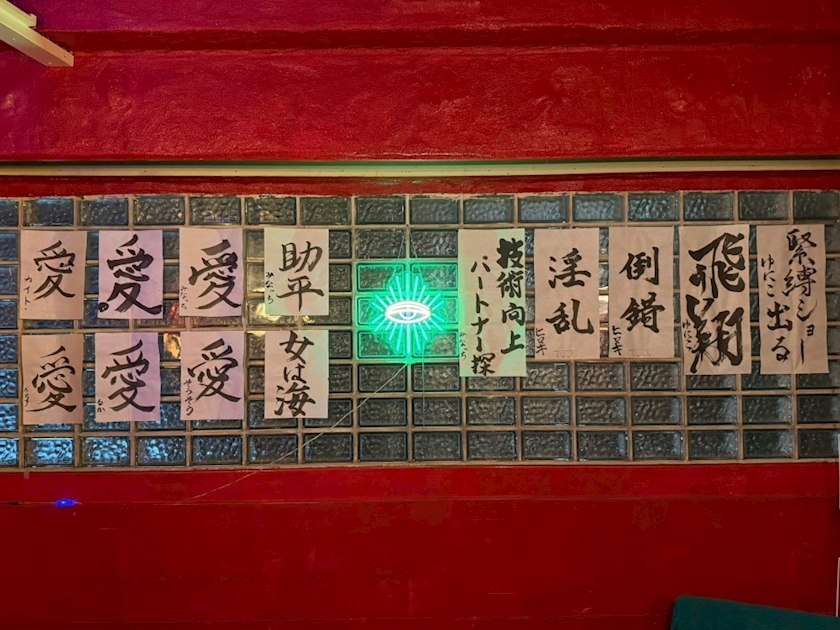 愛
ナイト
愛
愛
みなっち
助平
みなっち
愛
愛
るか
愛
そうそう
女は海
技術向上
パートナー探
みなっち
淫乱
ヒロキ
倒錯
ヒロキ
飛翔
ゆにこ
緊縛ショー
出る
ゆにこ